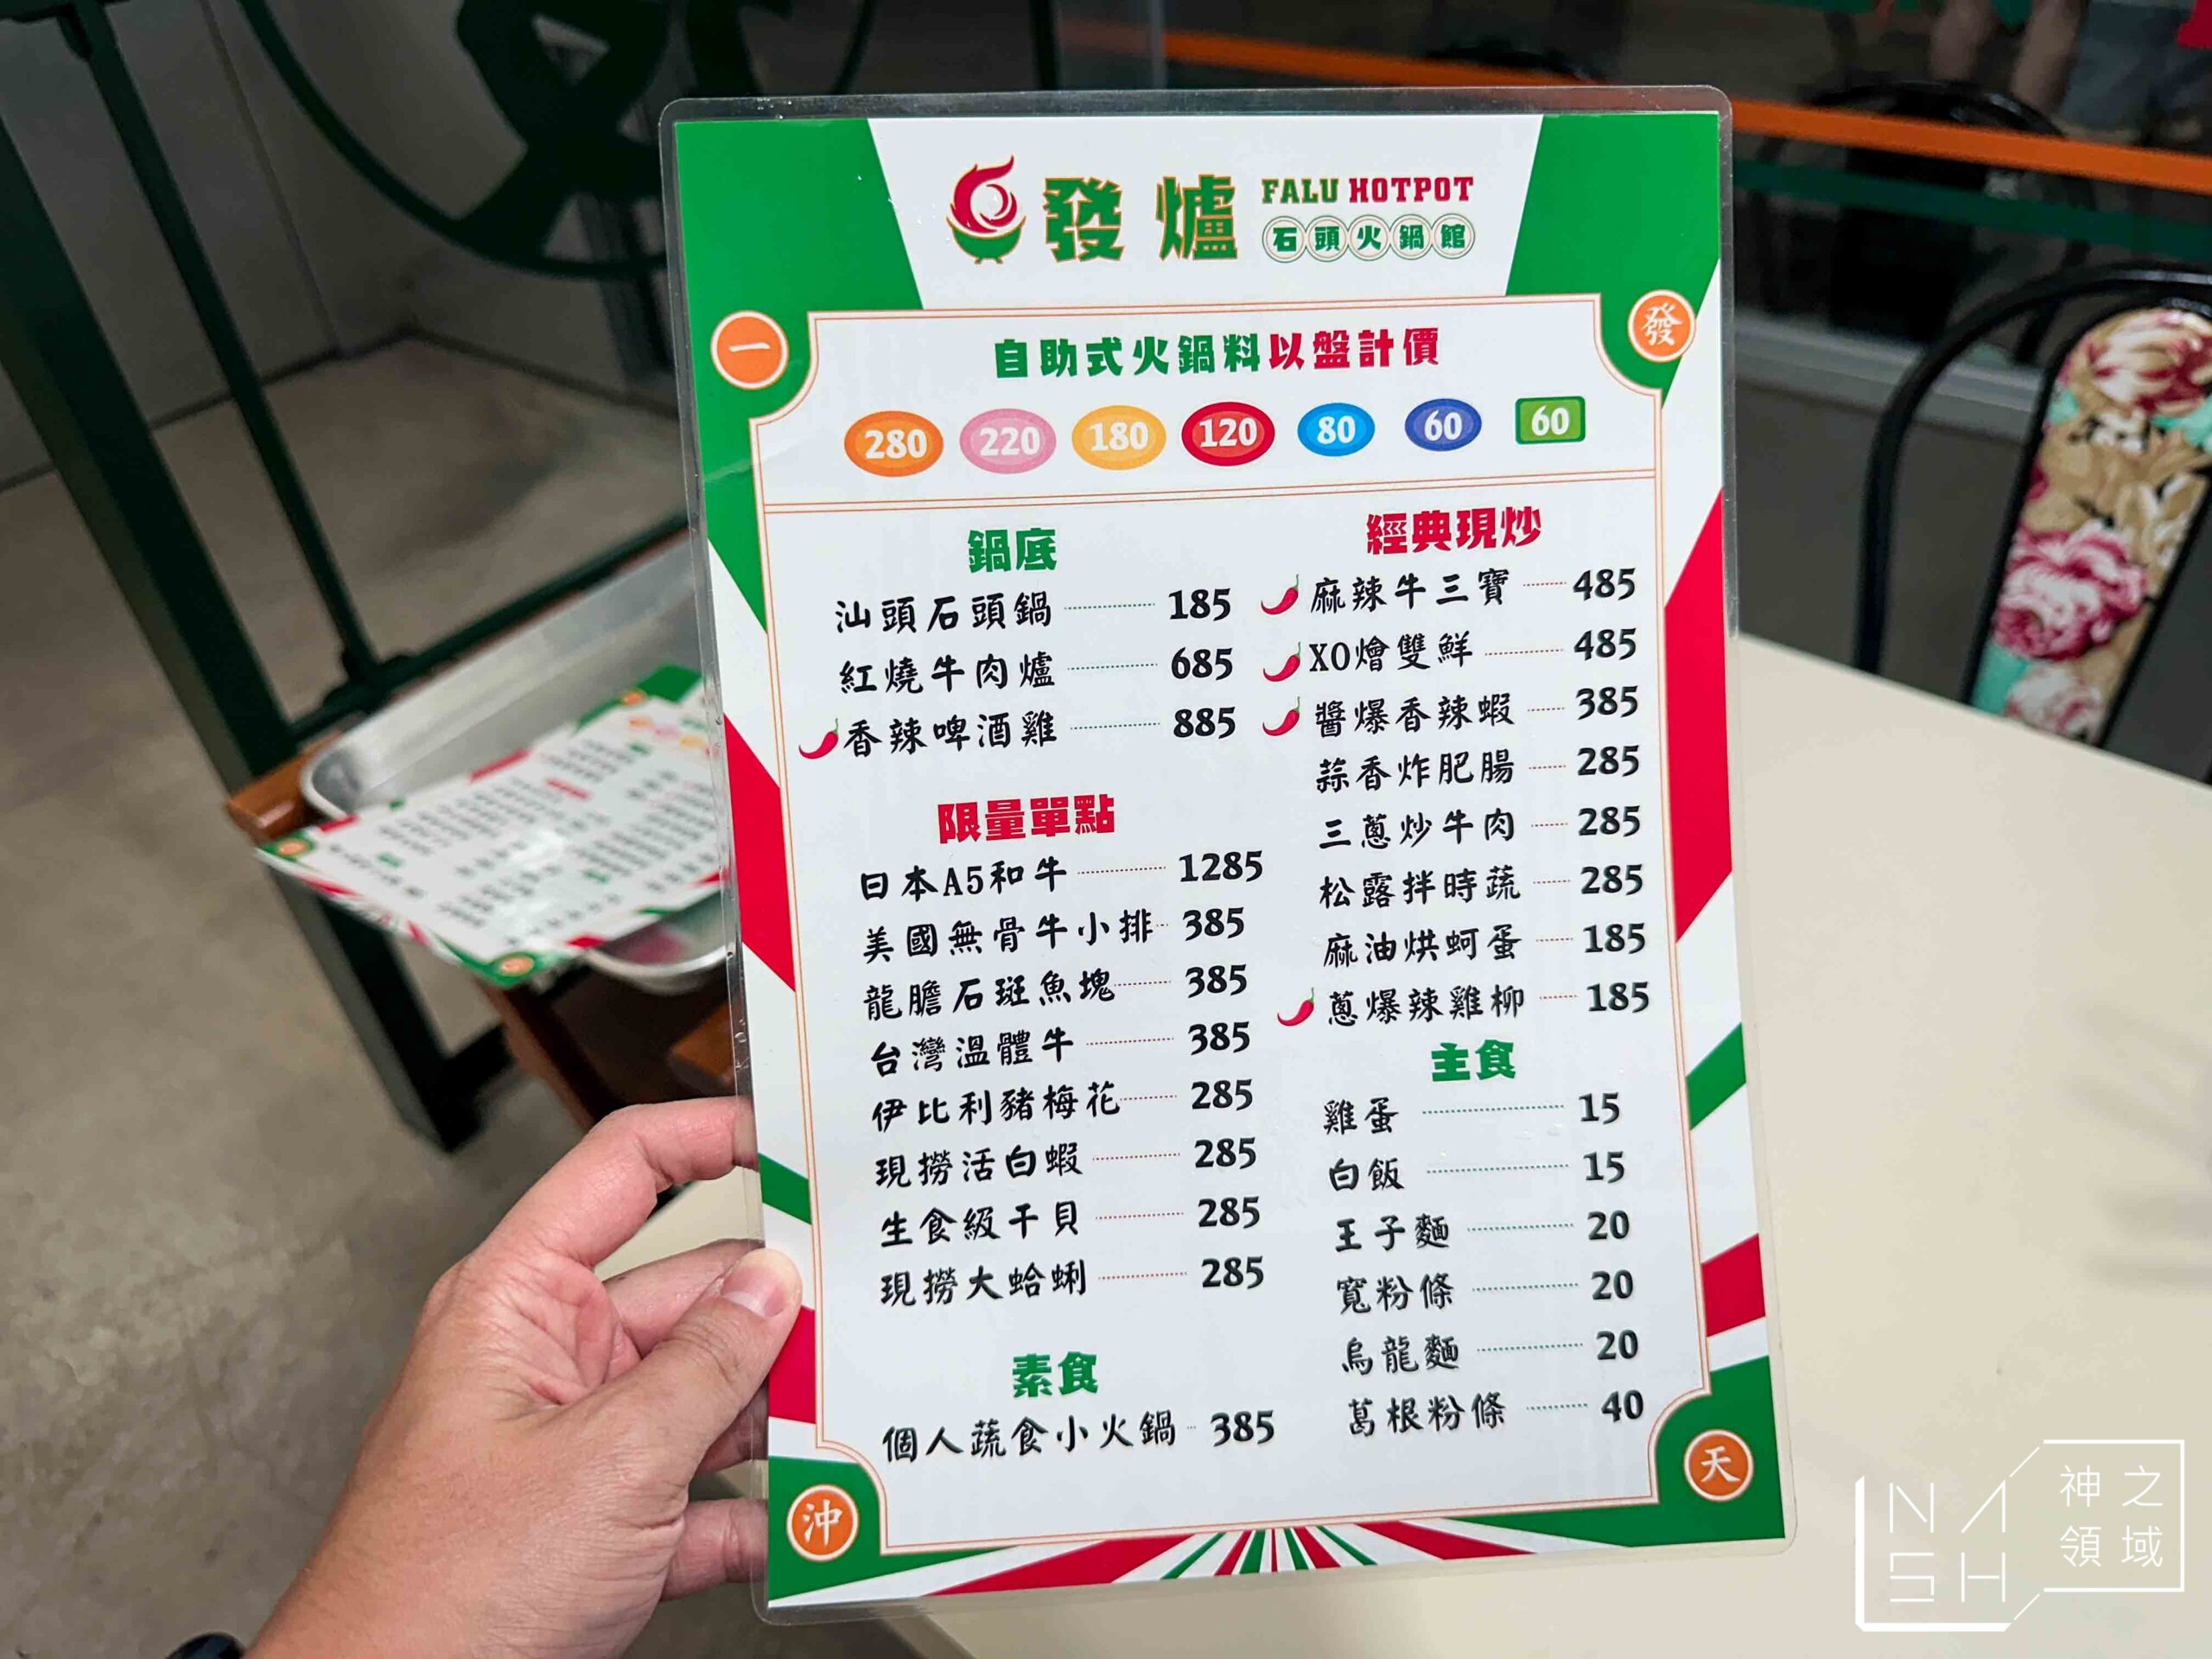 發爐 FALU HOTPOT
石頭火鍋館
一
發
自助式火鍋料以盤計價
280 220 180 120 80 60 60
鍋底
汕頭石頭鍋 185
紅燒牛肉爐 685
香辣啤酒雞 885
限量單點
日本A5和牛 1285
美國無骨牛小排 385
龍膽石斑魚塊 385
台灣溫體牛 385
伊比利豬梅花 285
現撈活白蝦 285
生食級干貝 285
現撈大蛤蜊 285
素食
個人蔬食小火鍋 385
經典現炒
麻辣牛三寶 485
XO燴雙鮮 485
醬爆香辣蝦 385
蒜香炸肥腸 285
三蔥炒牛肉 285
松露拌時蔬 285
麻油烘蚵蛋 185
蔥爆辣雞柳 185
主食
雞蛋 15
白飯 15
王子麵 20
寬粉條 20
烏龍麵 20
葛根粉條 40
沖
天
NASH
神之
領域